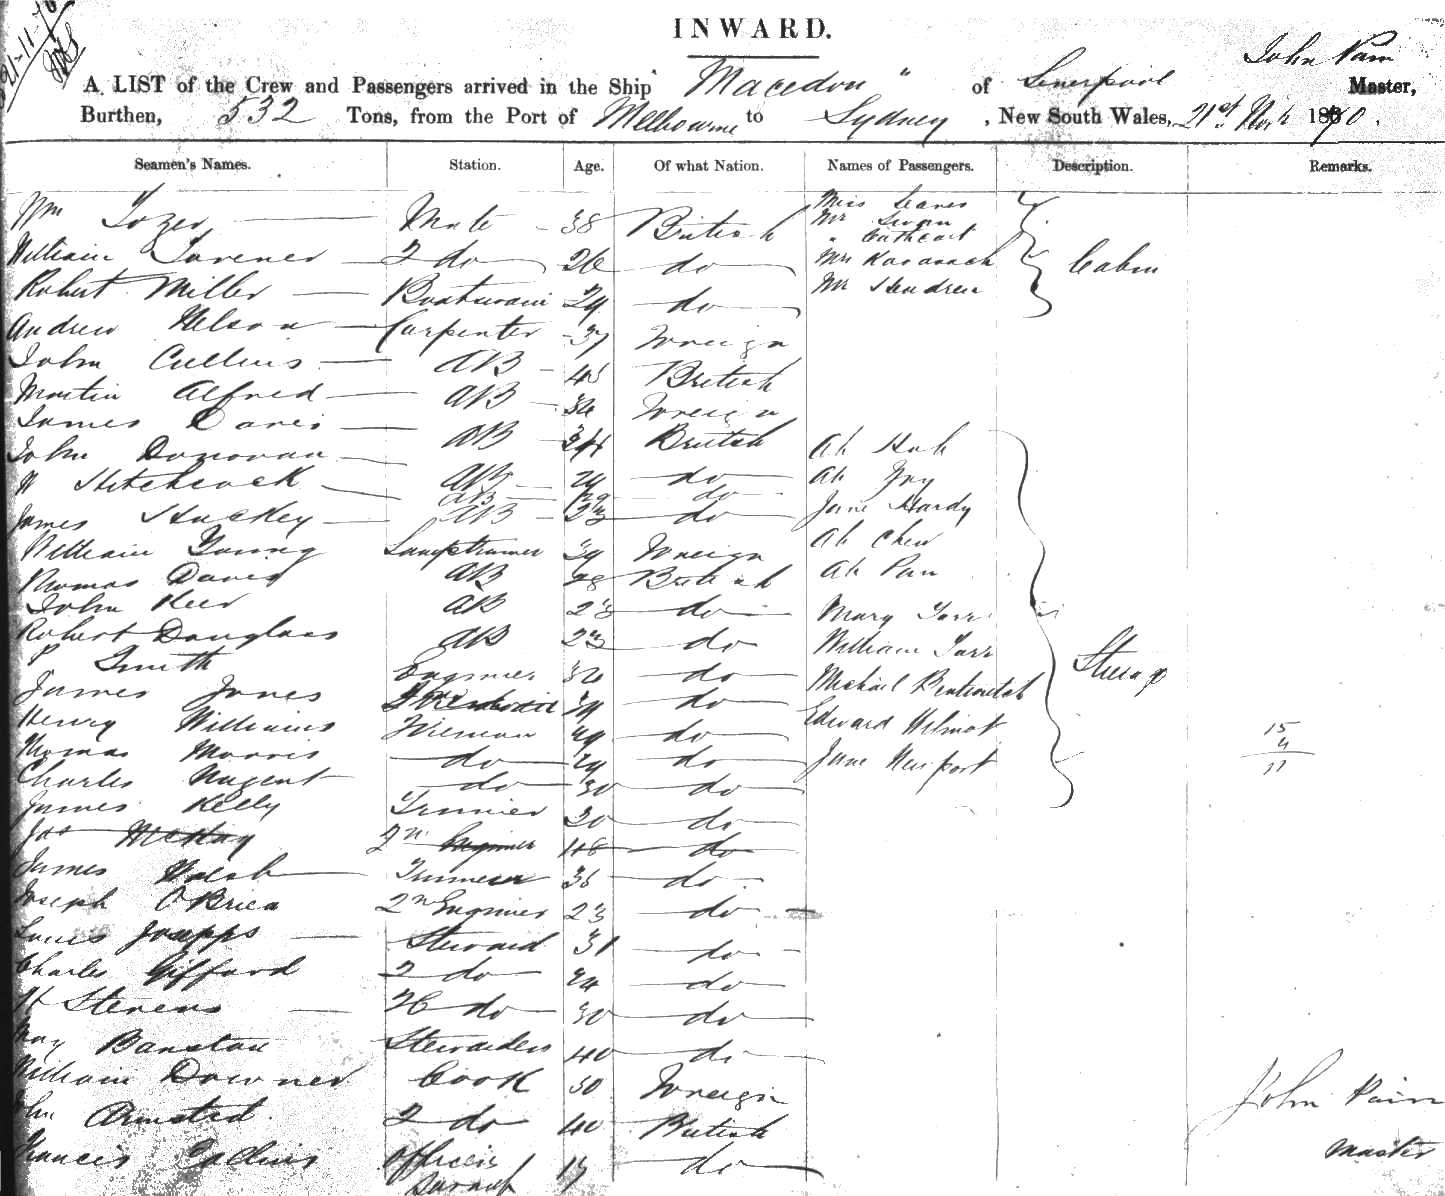 21-11-70
INWARD.
John Pain
A LIST of the Crew and Passengers arrived in the Ship "Macedon" of Liverpool Master,
Burthen, 532 Tons, from the Port of Melbourne to Sydney, New South Wales, 21st 1870.
Seamen's Names. Station. Age. Of what Nation. Names of Passengers. Description. Remarks.
Wm Tozer Mate 38 British
Miss
Mr
" Cathcart
William Taverner 2 do 26 do Mrs Kavanagh Cabin
Robert Miller Boatswain 29 do Mr Hendren
Andrew Nelson Carpenter 37 Foreign
John Cullins AB 45 British
Martin Alfred AB 36 Foreign
James Davis AB British
John Donovan AB 29 do Ah Hah
W Hitchcock AB do Ah
James Huckey AB 23 do Jane Hardy
William Young Lamptrimer 39 Foreign Ah Chew
Thomas Davis AB 28 British Ah Pan
John Reed AB 23 do Mary Tarr
Robert Douglass AB 23 do William Tarr Steerage
P Smith Engineer 36 do Michael
James Jones do Edward Wilmot
Henry Williams Fireman 29 do Jane Newport
15
4
11
Thomas Morris do 29 do
Charles Nugent do 30 do
James Kelly Trimmer 30 do
Jas McKay 2nd Engineer 48 do
James Walsh Trimmer 36 do
Joseph O'Brien 2nd Engineer 23 do
Josepps Steward 31 do
Charles Gifford 2 do 24 do
H Stevens do 30 do
May Banstau Stewardess 40 do
William Downer Cook 30 Foreign
John Pain
John Armsted 2 do 40 British
Master
Francis Collins Officers 17 do
Servant